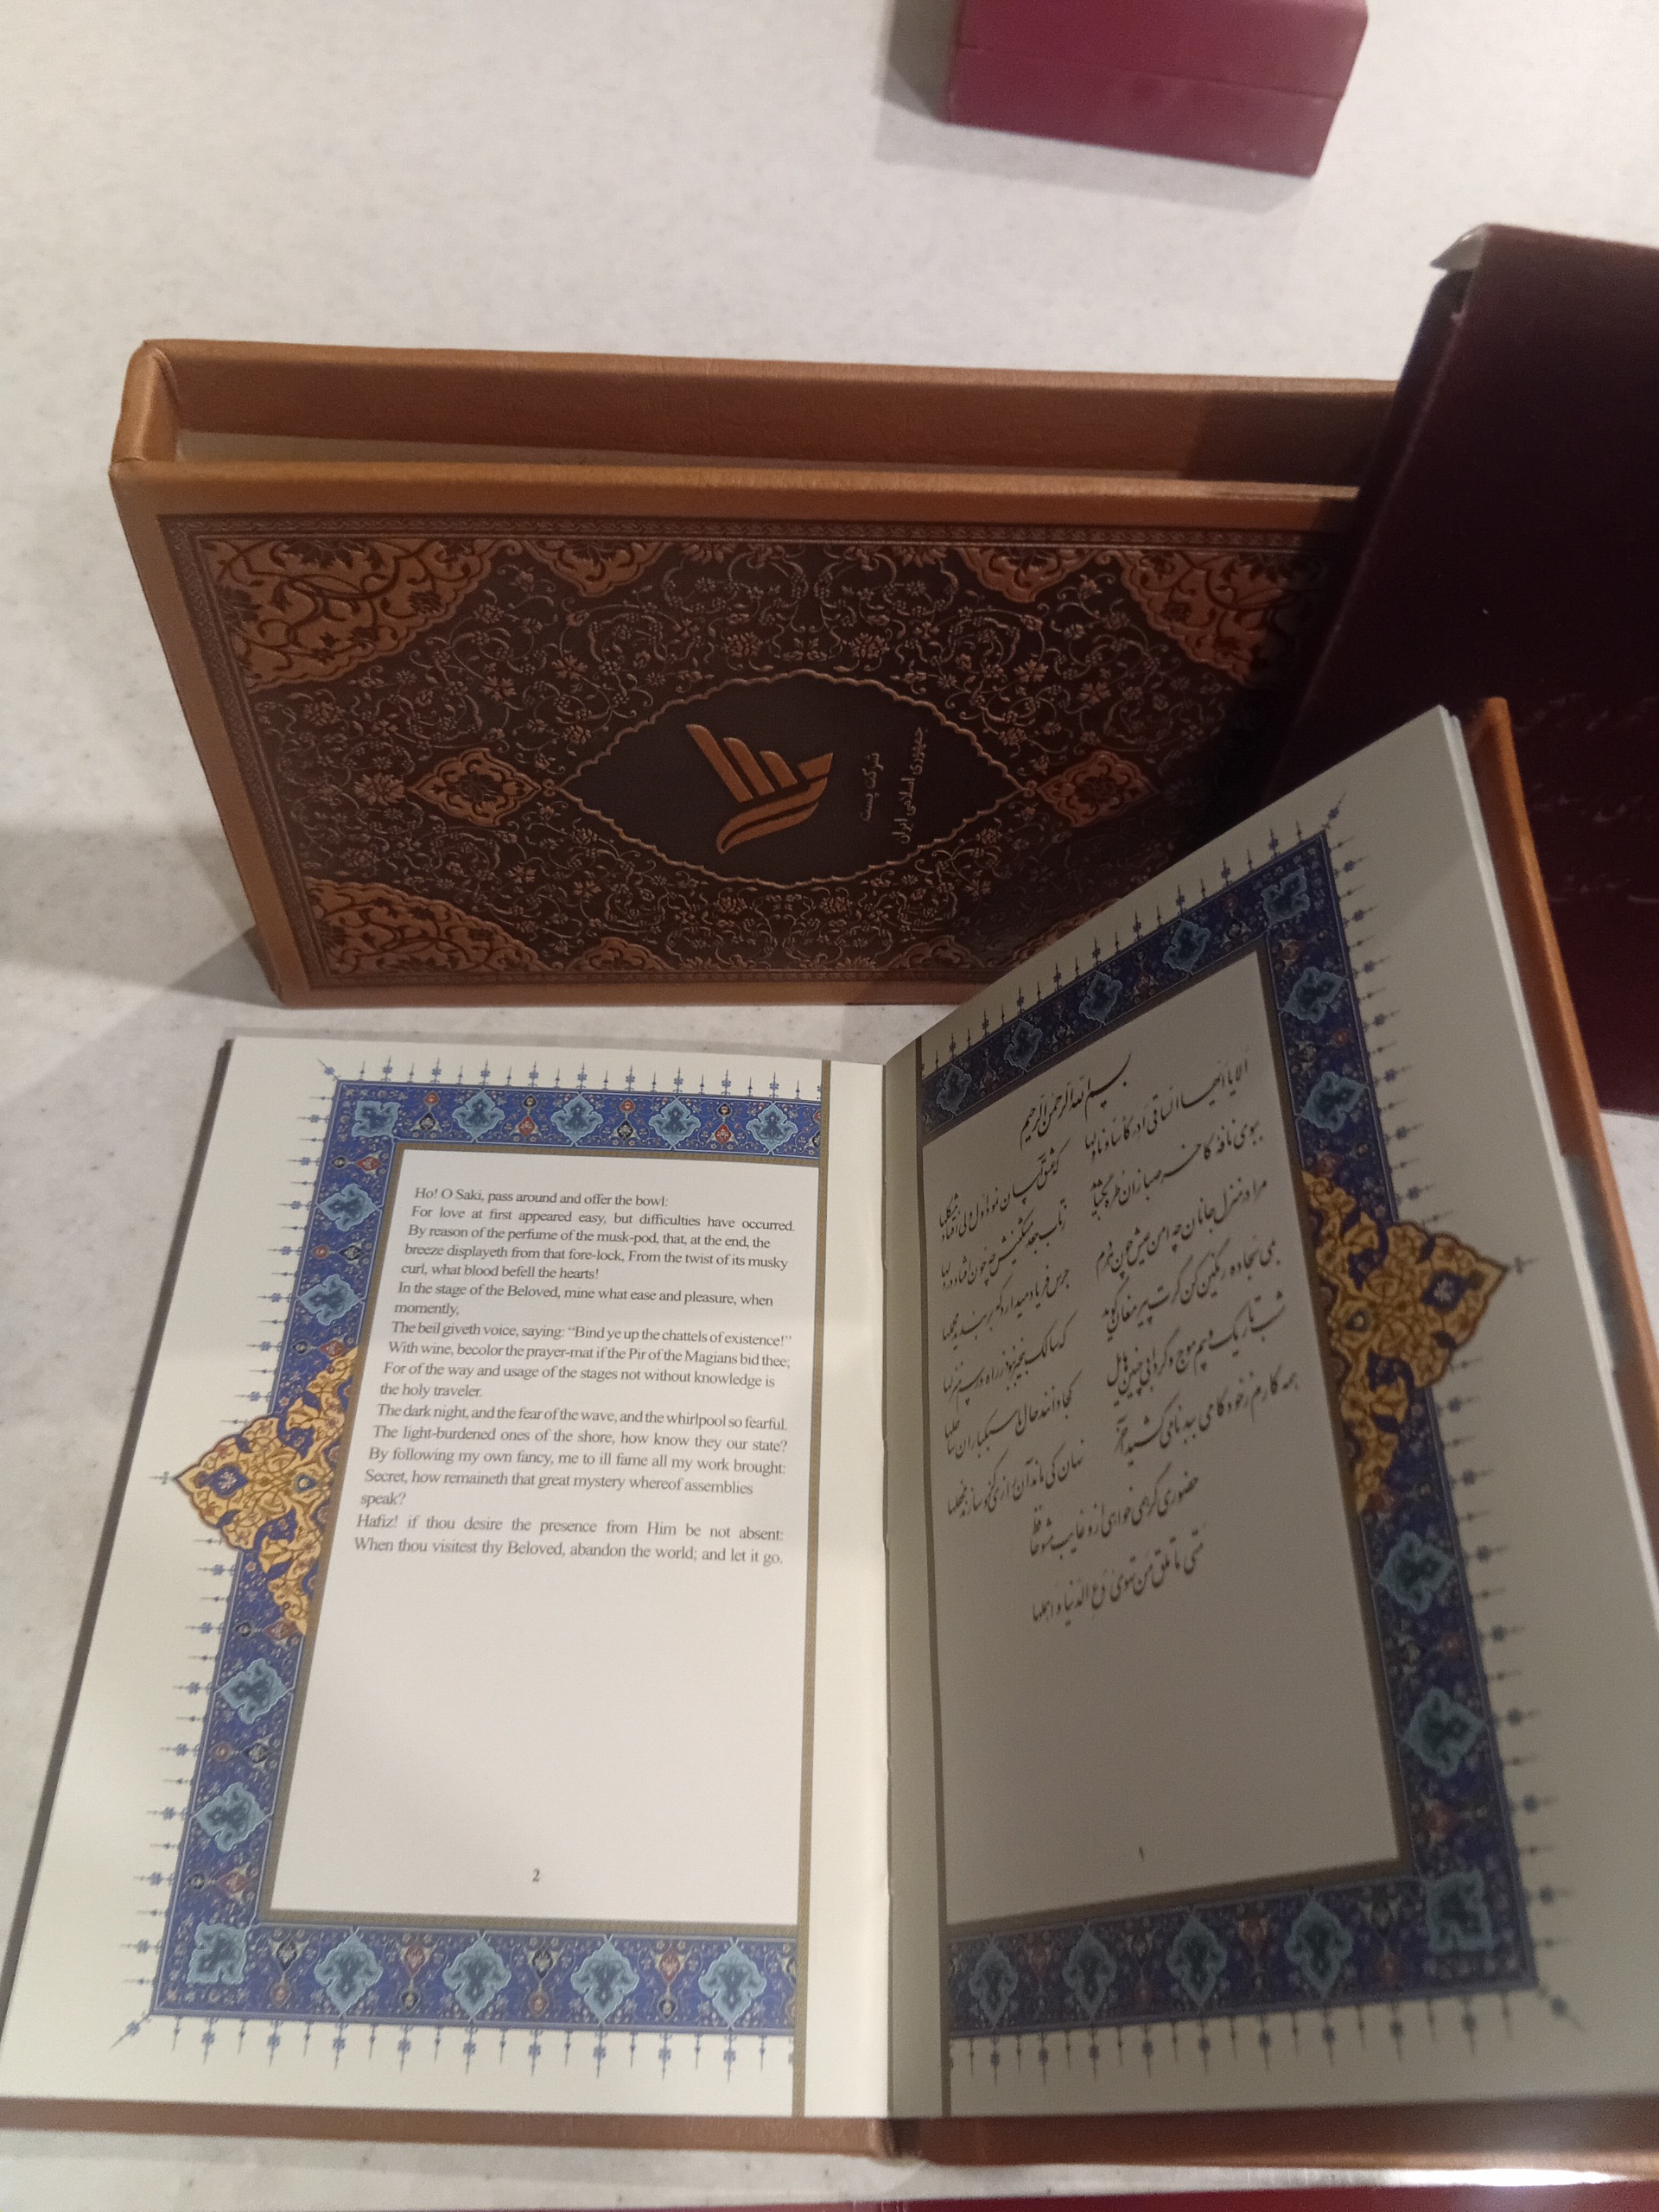 شرکت پست
جمهوری اسلامی ایران
Ho! O Saki, pass around and offer the bowl:
For love at first appeared easy, but difficulties have occurred.
By reason of the perfume of the musk-pod, that, at the end, the
breeze displayeth from that fore-lock, From the twist of its musky
curl, what blood befell the hearts!
In the stage of the Beloved, mine what ease and pleasure, when
momently,
The beil giveth voice, saying: “Bind ye up the chattels of existence!”
With wine, becolor the prayer-mat if the Pir of the Magians bid thee;
For of the way and usage of the stages not without knowledge is
the holy traveler.
The dark night, and the fear of the wave, and the whirlpool so fearful.
The light-burdened ones of the shore, how know they our state?
By following my own fancy, me to ill fame all my work brought:
Secret, how remaineth that great mystery whereof assemblies
speak?
Hafiz! if thou desire the presence from Him be not absent:
When thou visitest thy Beloved, abandon the world; and let it go.
2
بسم الله الرحمن الرحیم
الا یا ایها الساقی ادر کاسا و ناولها
که عشق آسان نمود اول ولی افتاد مشکلها
ببوی نافه کاخر صبا زان طره بگشاید
ز تاب جعد مشکینش چه خون افتاد در دلها
مرا در منزل جانان چه امن عیش چون هر دم
جرس فریاد میدارد که بربندید محملها
بمی سجاده رنگین کن گرت پیر مغان گوید
که سالک بیخبر نبود ز راه و رسم منزلها
شب تاریک و بیم موج و گردابی چنین هایل
کجا دانند حال ما سبکباران ساحلها
همه کارم ز خود کامی به بدنامی کشید آخر
نهان کی ماند آن رازی کزو سازند محفلها
حضوری گر همی خواهی ازو غایب مشو حافظ
متی ما تلق من تهوی دع الدنیا و اهملها
۱